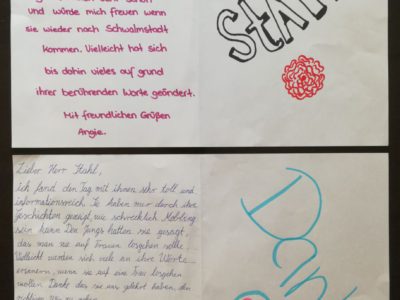 und würde mich freuen wenn
sie wieder nach Schwalmstadt
kommen. Vielleicht hat sich
bis dahin vieles auf grund
ihrer berührenden Worte geändert.
Mit freundlichen Grüßen
Angie.
Lieber Herr Stahl,
ich fand den Tag mit ihnen sehr toll und
informationsreich. Sie haben mir durch ihre
Geschichten gezeigt, wie schrecklich Mobbing
sein kann. Den Jungs hatten sie gesagt,
das man nie auf Frauen losgehen sollte.
Vielleicht werden sich viele an ihre Worte
erinnern, wenn sie auf eine Frau losgehen
wollen. Danke das sie uns gelehrt haben, den